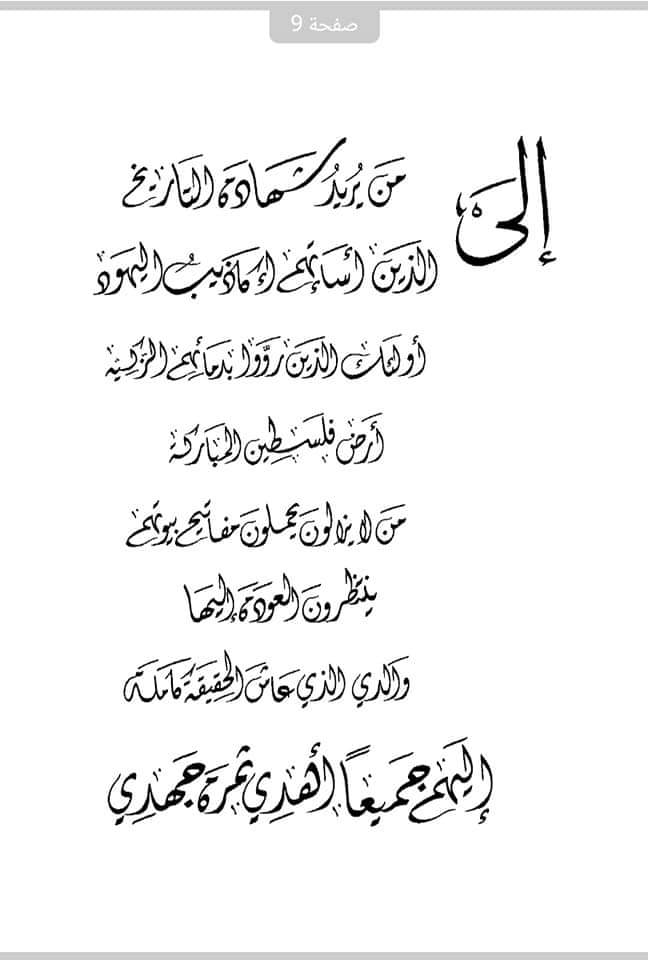 صفحة 9
إلى
من يُريدُ شهادة التاريخ
الذين أساءتهم أكاذيبُ اليهود
أولئك الذين روَّوا بدمائهم الزكيه
أرض فلسطين المباركة
من لا يزالون يحملون مفاتيح بيوتهم
ينتظرون العودة إليها
والدي الذي عاش الحقيقة كاملة
إليهم جميعاً أهدي ثمرة جهدي